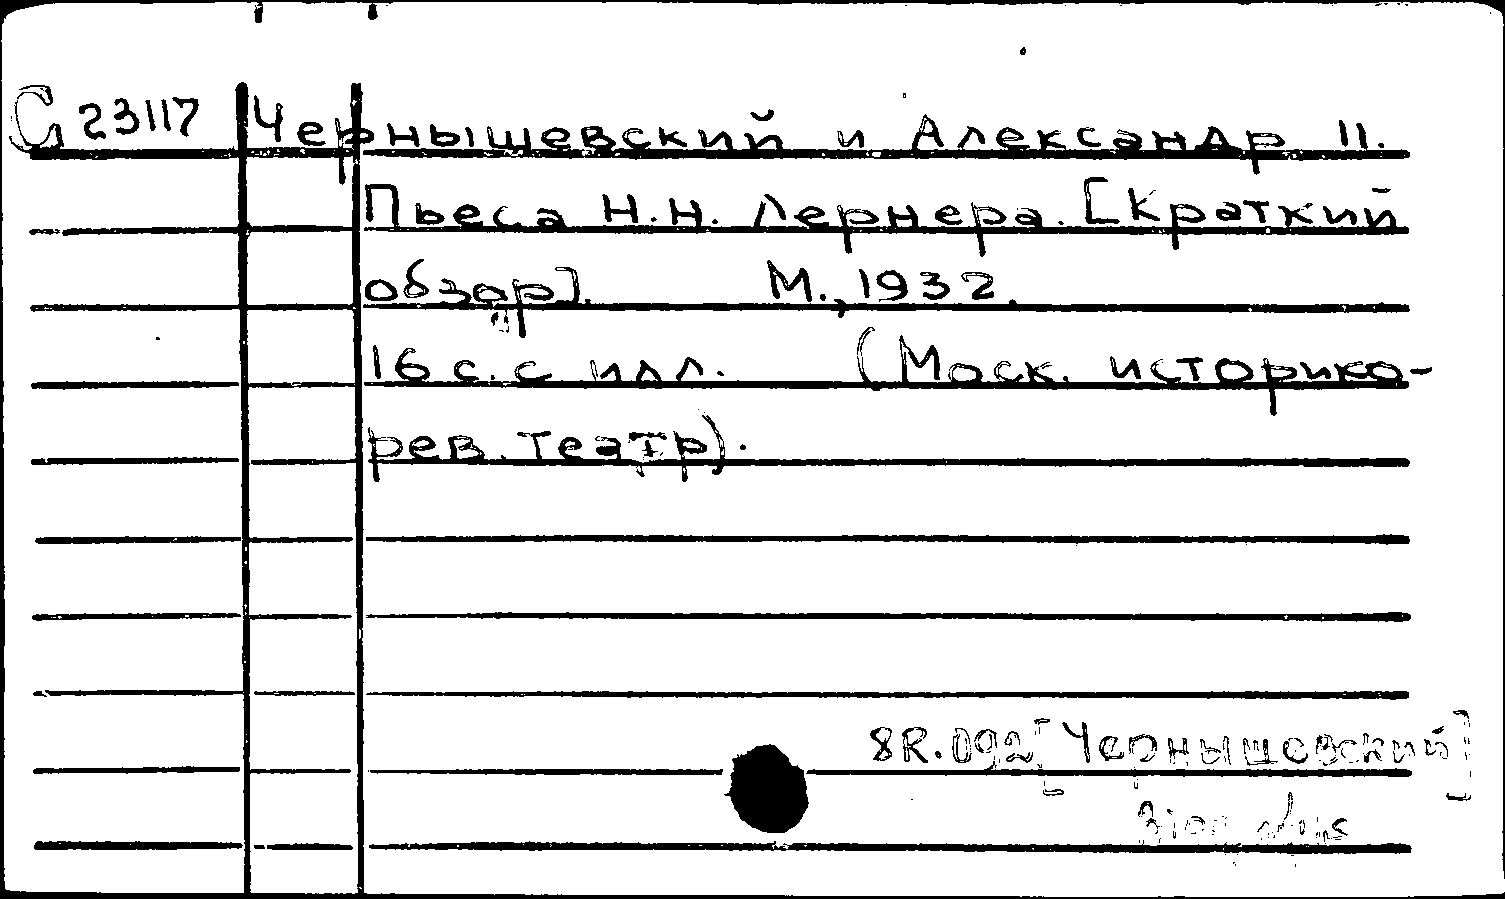 G 23117 Чернышевский и Александр II.
Пьеса Н.Н. Лернера. [Краткий
обзор]. М., 1932.
16 с. с илл. (Моск. историко-
рев. театр).
8R.092[Чернышевский]